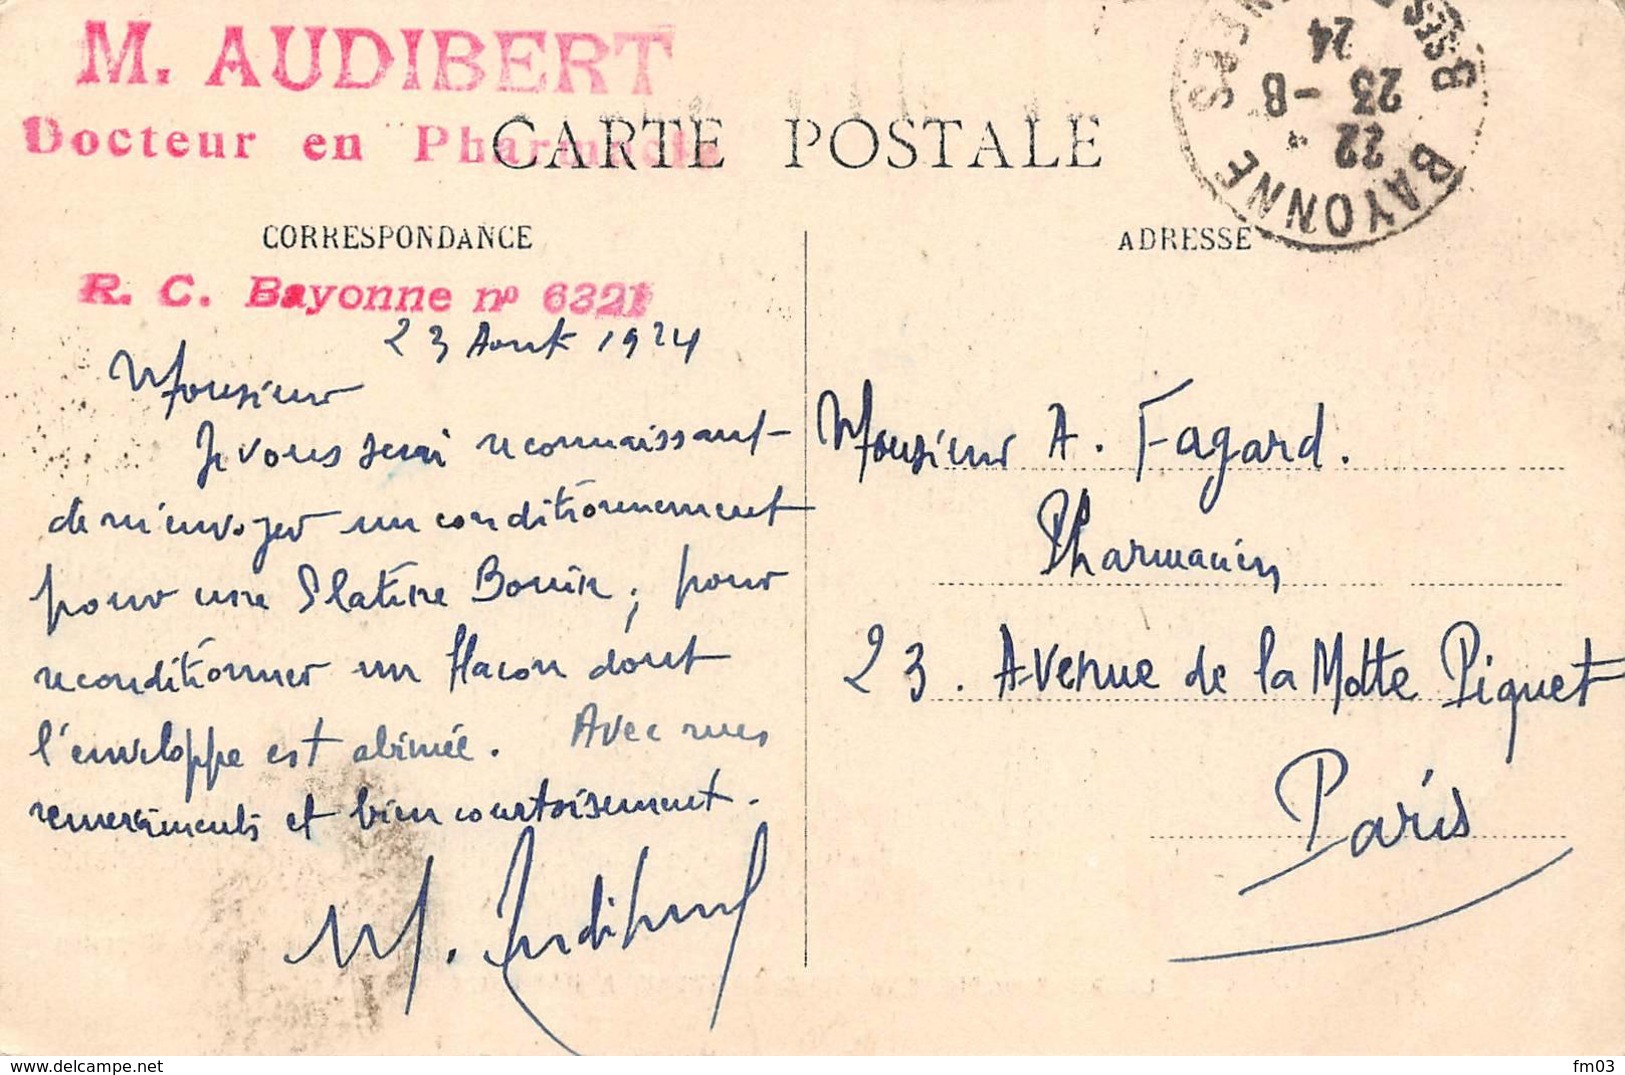 M. AUDIBERT
Docteur en Pharmacie
CARTE POSTALE
BAYONNE
22
23 - 8
24
CORRESPONDANCE
ADRESSE
R. C. Bayonne nº 6321
23 Août 1924
Monsieur
Je vous serai reconnaissant
de m'envoyer un conditionnement
pour une Platine Bouin, pour
reconditionner un flacon dont
l'enveloppe est abimée. Avec mes
remerciments et bien courtoisement.
M. Audibert
Monsieur A. Fagard.
Pharmacien
23. Avenue de la Motte Piquet
Paris
fm03